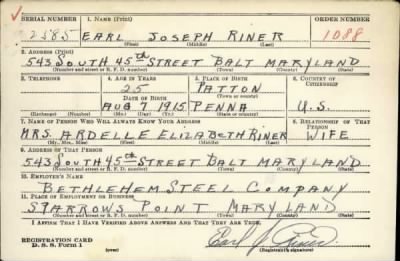 SERIAL NUMBER 1. NAME (Print) ORDER NUMBER
2385 EARL JOSEPH RINER 1088
(First) (Middle) (Last)
2. ADDRESS (Print)
543 SOUTH 45th STREET BALT MARYLAND
(Number and street or R. F. D. number) (Town) (County) (State)
3. TELEPHONE 4. AGE IN YEARS 5. PLACE OF BIRTH 6. COUNTRY OF CITIZENSHIP
25 PATTON
DATE OF BIRTH (Town or county)
AUG 7 1915 PENNA U.S.
(Exchange) (Number) (Mo.) (Day) (Yr.) (State or country)
7. NAME OF PERSON WHO WILL ALWAYS KNOW YOUR ADDRESS 8. RELATIONSHIP OF THAT PERSON
MRS. ARDELLE ELIZABETH RINER WIFE
(Mr., Mrs., Miss) (First) (Middle) (Last)
9. ADDRESS OF THAT PERSON
543 SOUTH 45th STREET BALT MARYLAND
(Number and street or R. F. D. number) (Town) (County) (State)
10. EMPLOYER'S NAME
BETHLEHEM STEEL COMPANY
11. PLACE OF EMPLOYMENT OR BUSINESS
SPARROWS POINT MARYLAND
(Number and street or R. F. D. number) (Town) (County) (State)
I AFFIRM THAT I HAVE VERIFIED ABOVE ANSWERS AND THAT THEY ARE TRUE.
REGISTRATION CARD
D. S. S. Form 1 (over) Earl J Riner
(Registrant's signature)